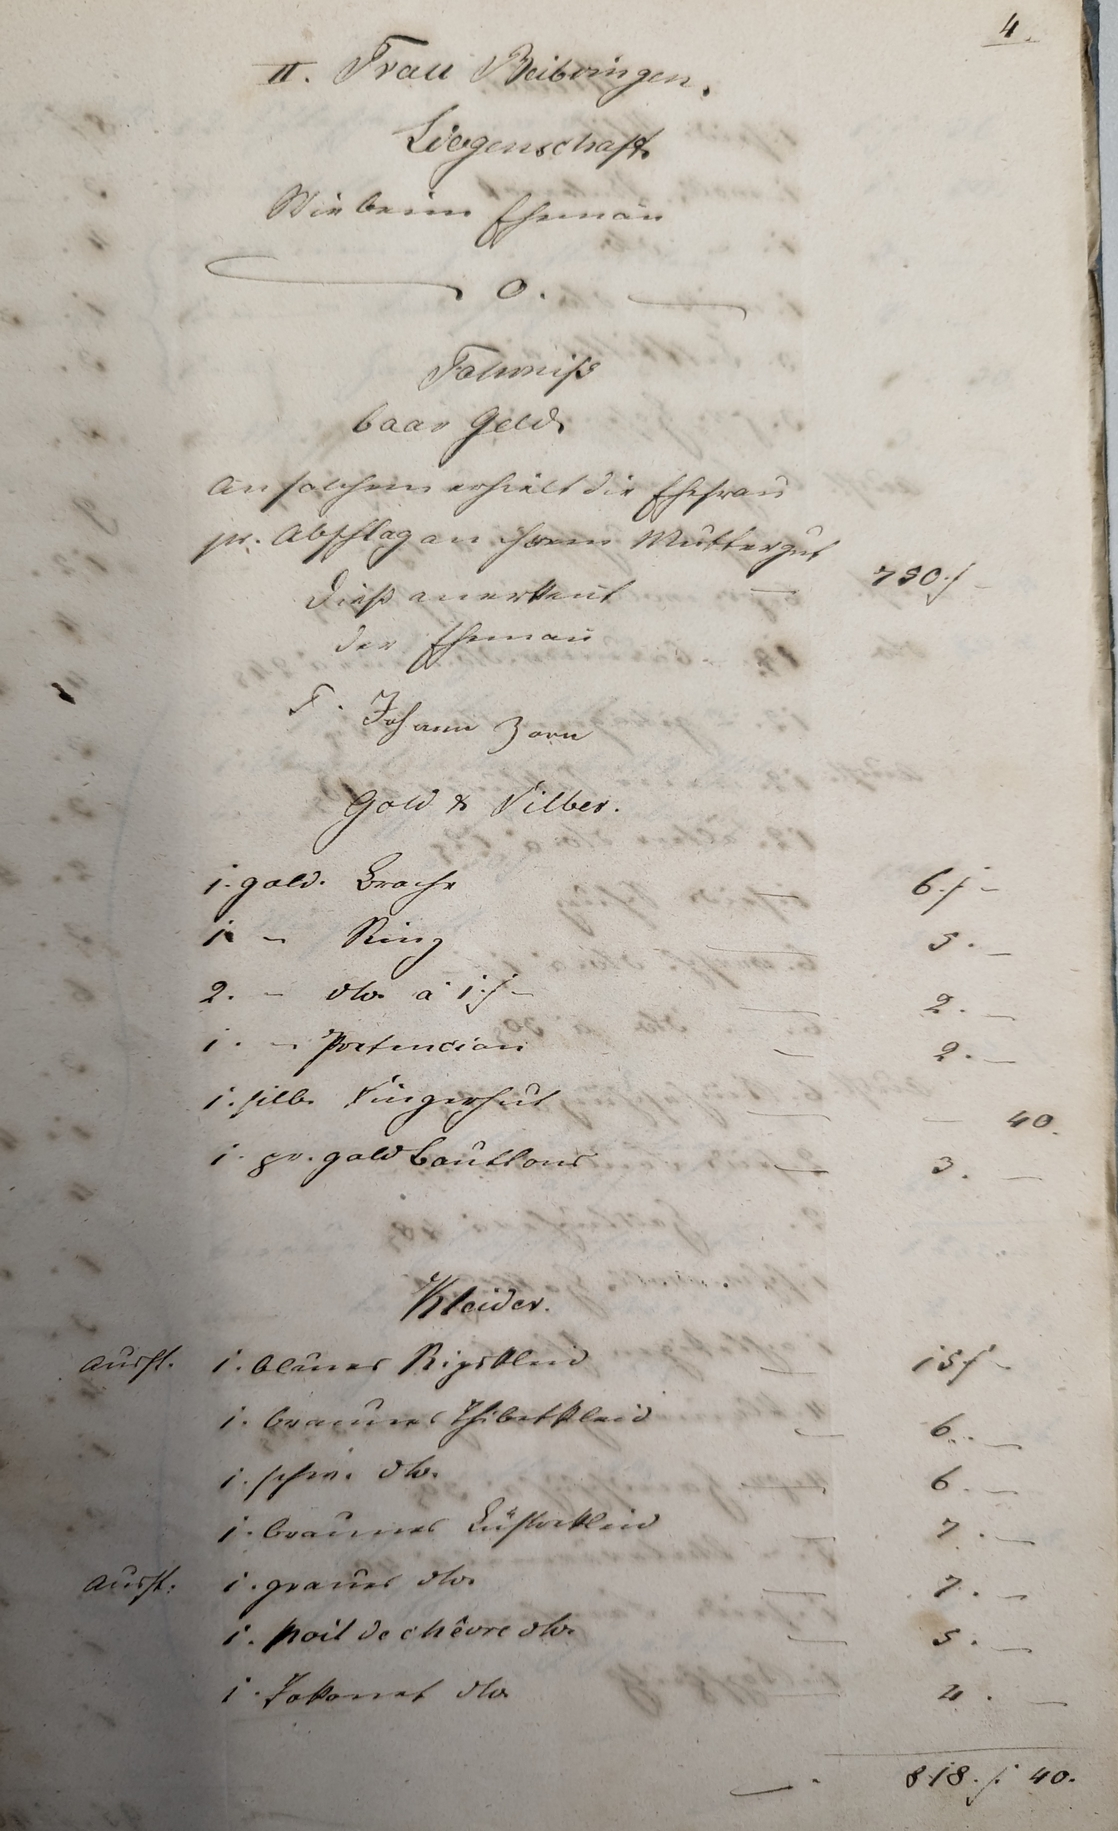 4.
II. Frau Beibringen.
Liegenschaft
Wie beim Ehemañ
0.
Fahrniß
baar Geld
An solchem erhielt die Ehefrau
pr. Abschlag an ihrem Muttergut
750 f –
Dieß anerkent
der Ehemañ
T. Johann Zorn
Gold & Silber.
1. gold. Broche – 6. f –
1. – Ring – 5. –
2. – dto. à 1 f – – 2. –
1. – – 2. –
1. silb. Fingerhut – – 40.
1. pr. gold Boutlons – 3. –
Kleider.
Ausst. 1. blaues Ripskleid – 15 f –
1. braunes Thibetkleid – 6. –
1. schw. dto. – 6. –
1. braunes Lüstrekleid – 7. –
Ausst. 1. graues dto. – 7. –
1. Poil de chêvre dto. – 5. –
1. Jakonet dto. – 4. –
– 818. f. 40.